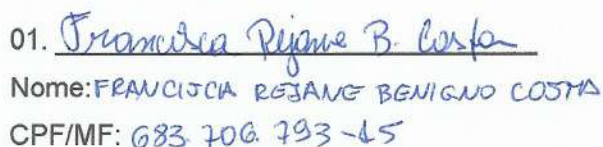 01. Francisca Rejane B. Costa
Nome: FRANCISCA REJANE BENIGNO COSTA
CPF/MF: 683.706.793-15